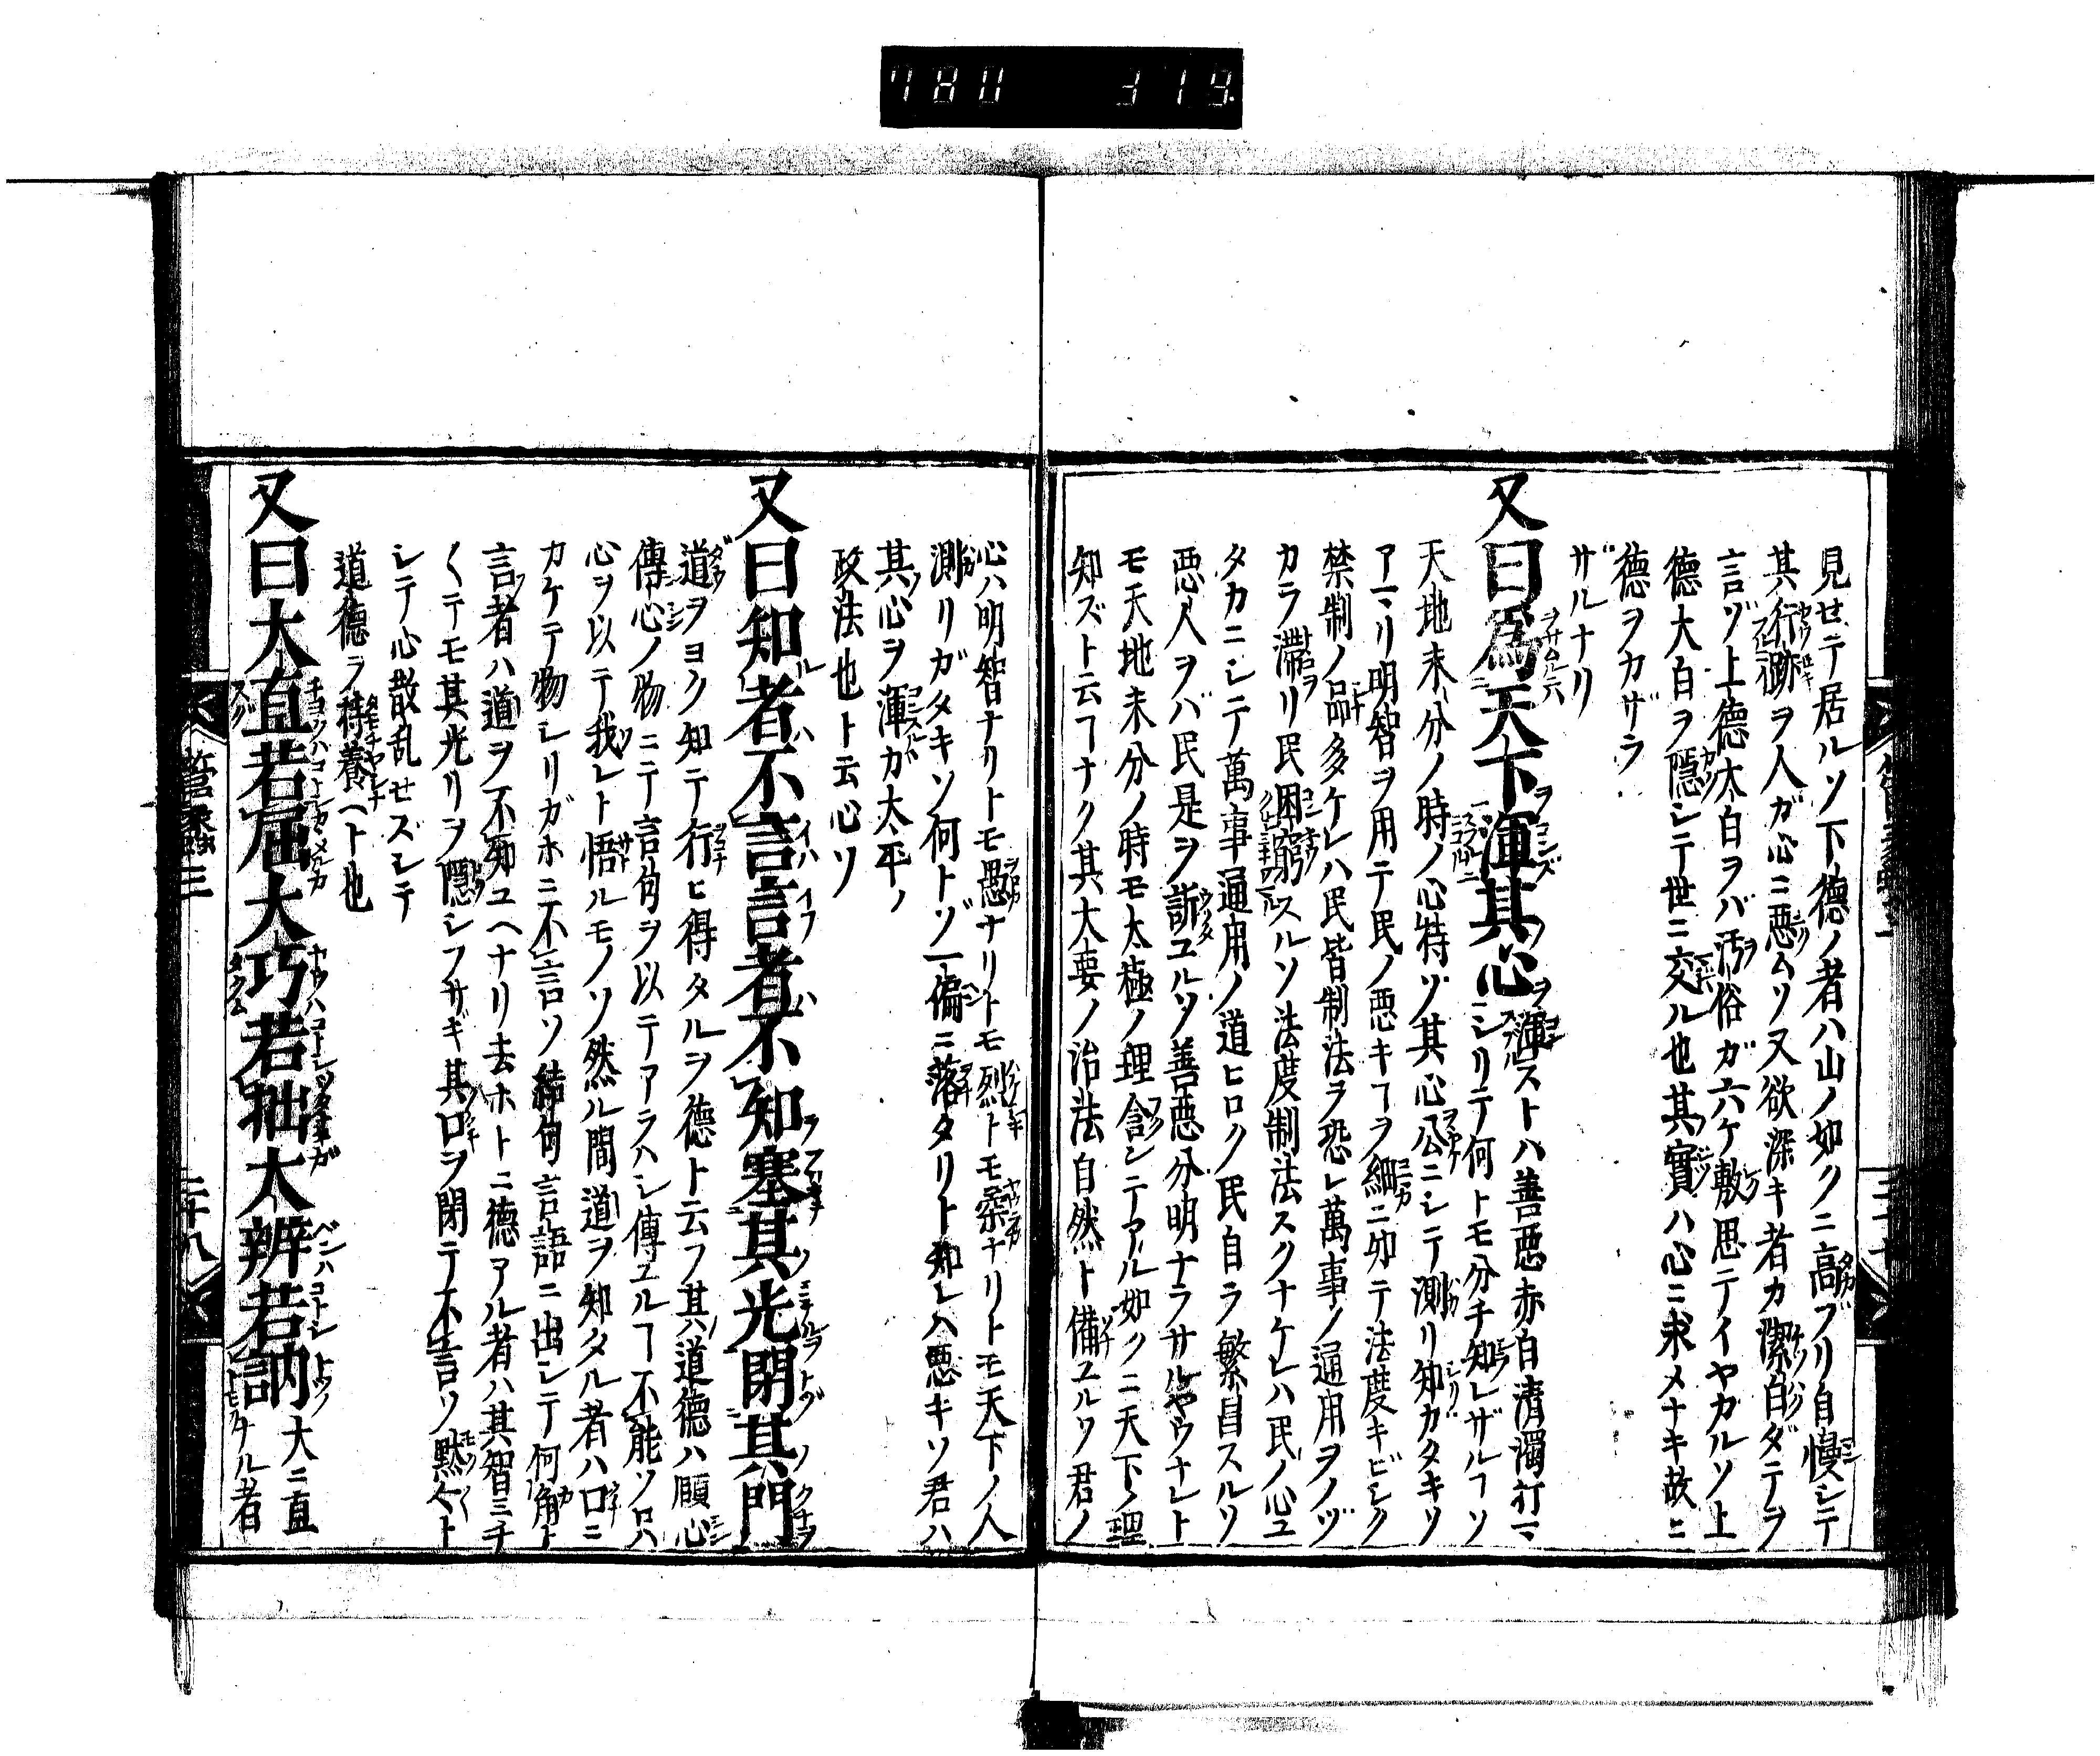 780 319
見せテ居ルソ下德ノ者ハ山ノ如クニ高ブリ自慢シテ
其行跡ヲ人ガ心ニ惡ムソ又欲深キ者カ潔白ダテヲ
言ヅ上德大白ヲバ汚俗ガ六ケ敷思テイヤカルソ上
德大白ヲ隱シテ世ニ交ル也其實ハ心ニ求メナキ故ニ
德ヲカザラ
ザルナリ
又曰爲天下渾其心 渾ストハ善惡赤白清濁打マ
シリテ何トモ分チ知レザルヿソ
天地未分ノ時ノ心特ゾ其心公ニシテ測リ知ガタキソ
アマリ明智ヲ用テ民ノ惡キヿヲ細ニ知テ法度キビシク
禁制ノ品多ケレハ民皆制法ヲ恐レ萬事ノ通用ヲノヅ
カラ滯リ民困窮スルソ法度制法スクナケレハ民ノ心ユ
タカニシテ萬事通用ノ道ヒロク民自ラ繁昌スルソ
惡人ヲバ民是ヲ訴ユルソ善惡分明ナラサルヤウナレト
モ天地未分ノ時モ太極ノ理含シテアル如クニ天下ノ理
知ズト云ヿナク其大要ノ治法自然ト備ユルソ君ノ
心ハ明智ナリトモ愚ナリトモ烈トモ柔ナリトモ天下ノ人
測リガタキソ何トゾ一偏ニ落タリト知レハ惡キソ君ハ
其心ヲ渾スルガ太平ノ
政法也ト云心ソ
又曰知者不言言者不知塞其光閉其門
道ヲヨク知テ行ヒ得タルヲ德ト云フ其道德ハ願心
傳心ノ物ニテ言句ヲ以テアラハシ傳ユルヿ不能ソ只
心ヲ以テ我レト悟ルモノソ然ル間道ヲ知タル者ハ口ニ
カケテ物シリガホニ不言ソ綺句言語ニ出シテ何角ト
言者ハ道ヲ不知ユヘナリ去ホトニ德アル者ハ其智ミチ
〱テモ其光リヲ隱シフサギ其口ヲ閉テ不言ソ默々ト
シテ心散乱せズシテ
道德ヲ待養ヘト也
又曰大直若屈大巧若拙大辨若訥 大ニ直
ナル者